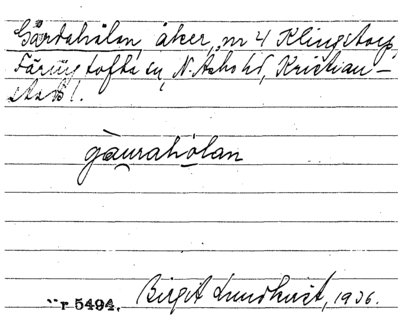 Gårdahålan, åker, m 4 Klingstorp,
Färingtofta sn, N. Åsbo hd, Kristian-
stads l.
gåu̲rahó̲lan
r 5494. Birgit Lundkvist, 1936.